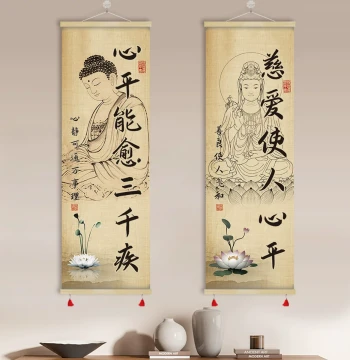 心平能愈三千疾
心静可通万事理
慈爱使人心平